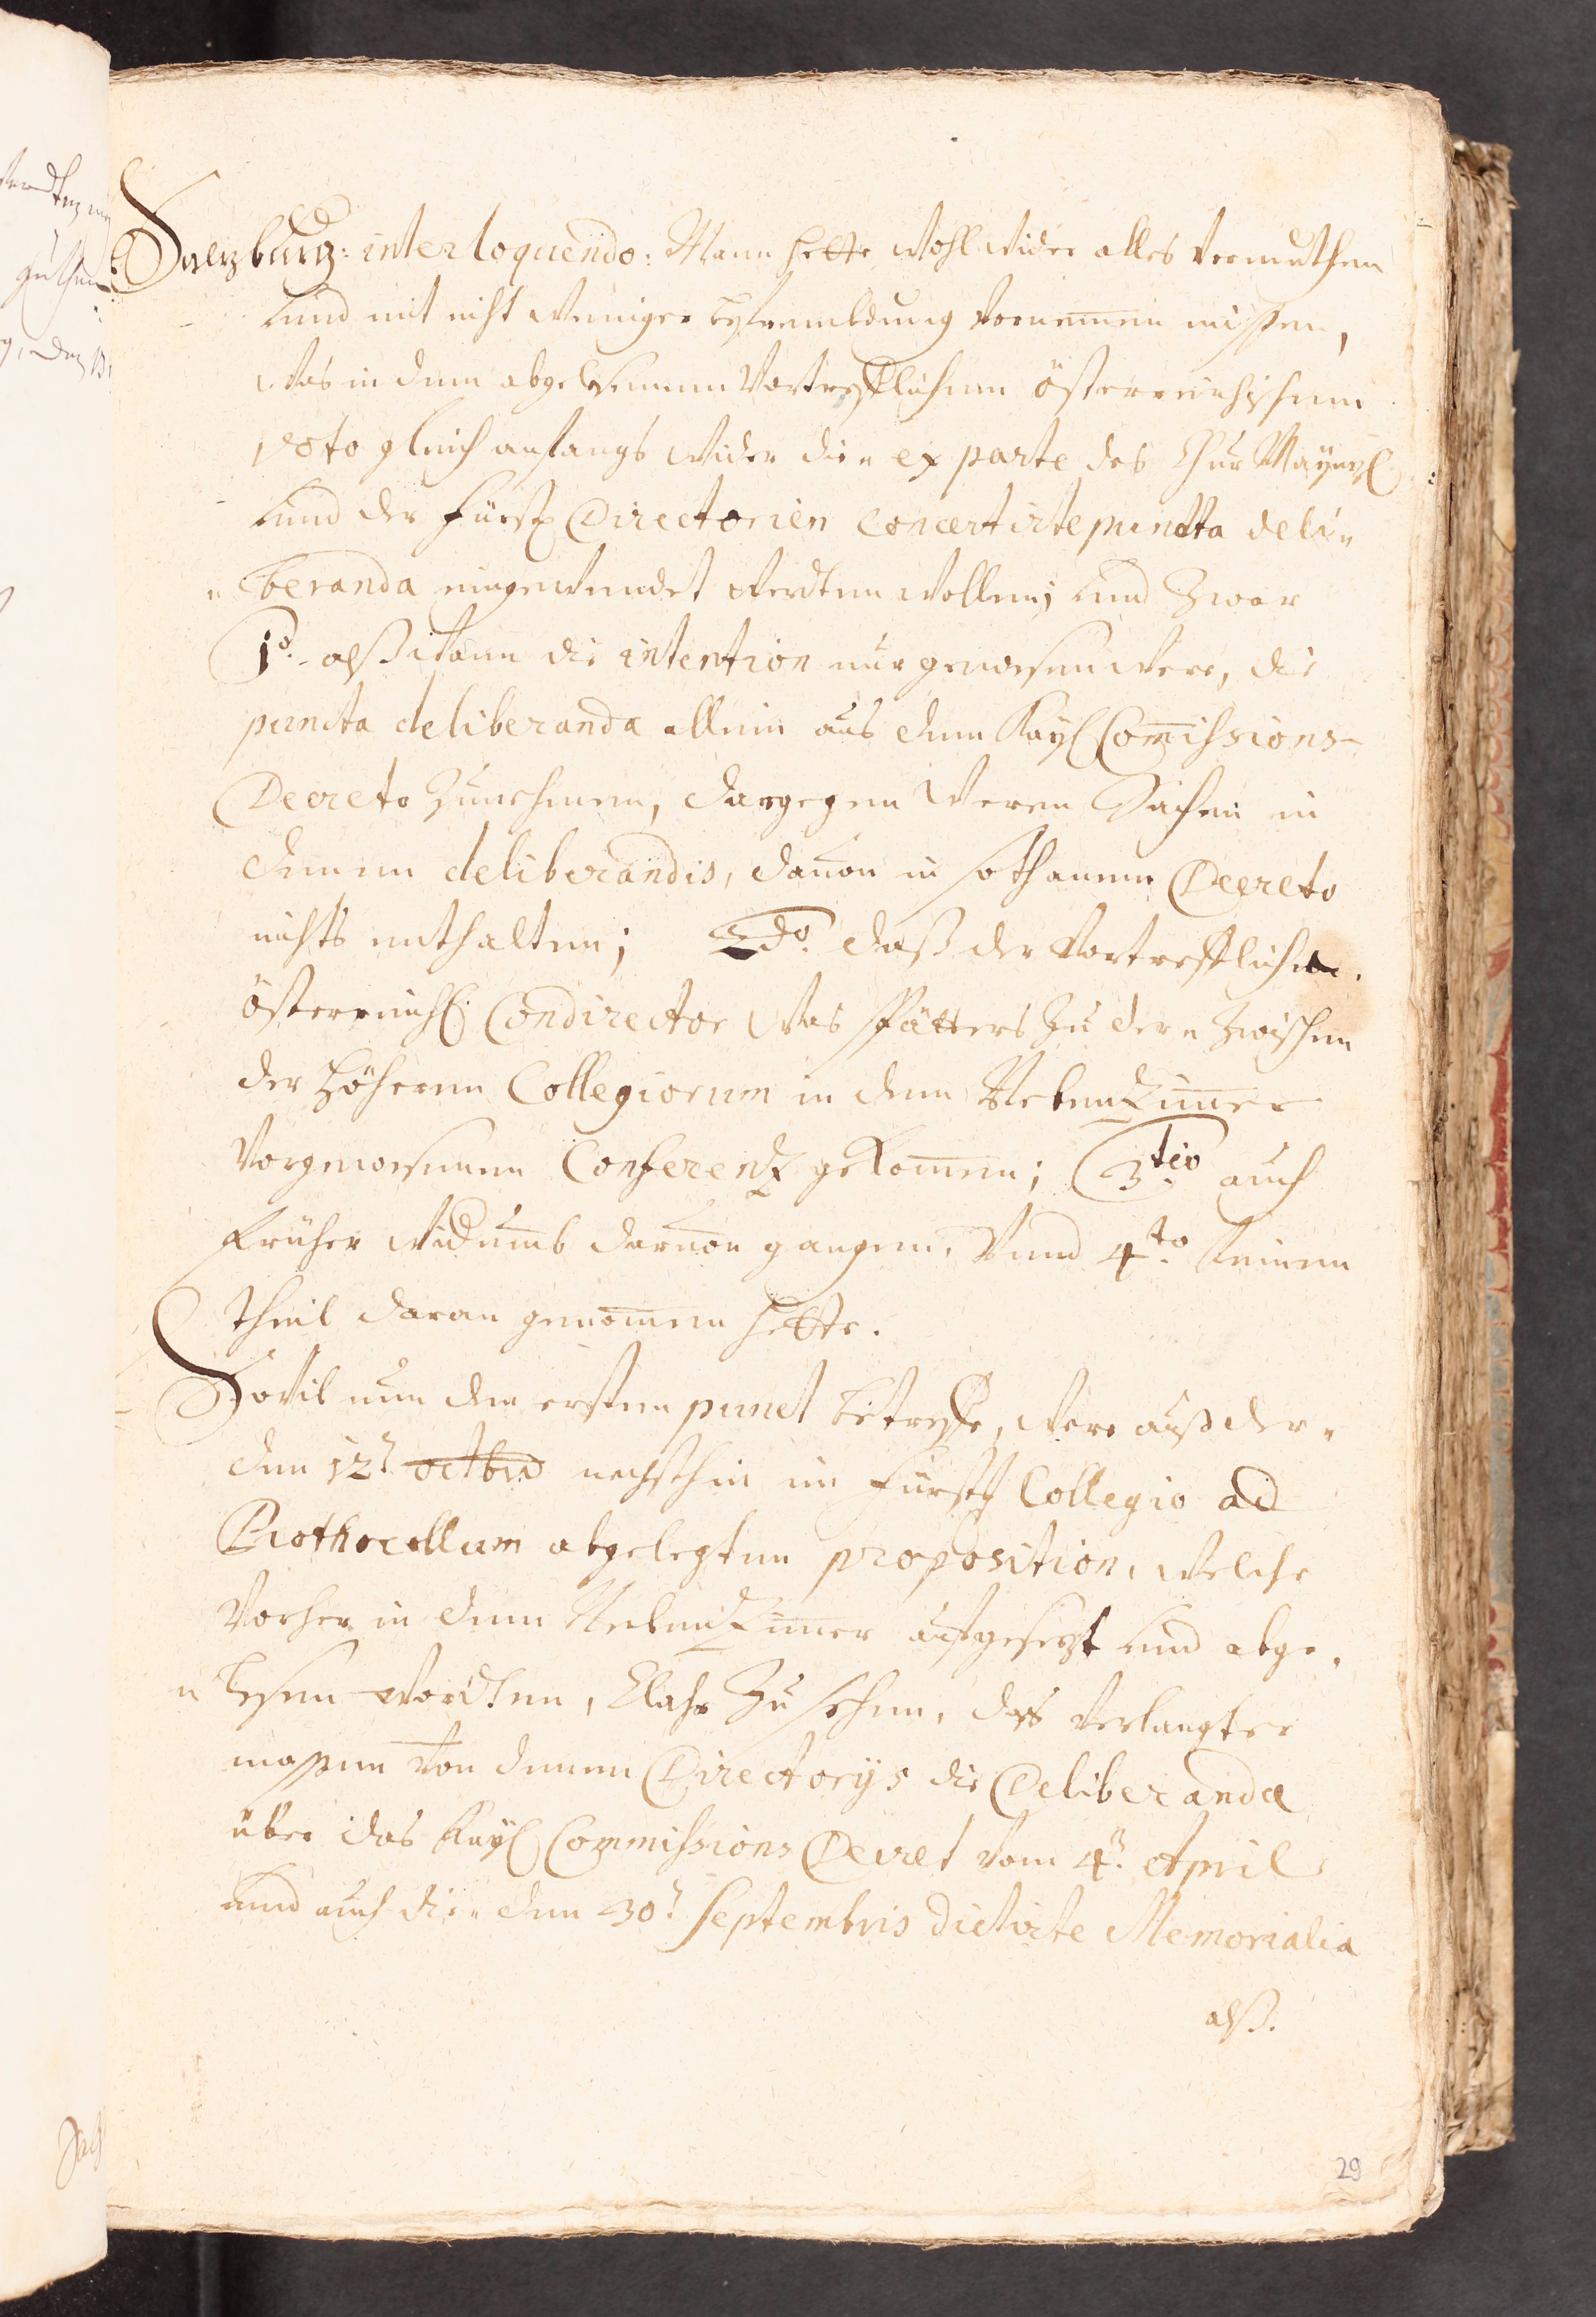 Salzburg: interloquendo: Mann hette wohl wider alles vermuthen
und mit nicht weniger befrembdung vernemmen müssen,
was in dem abgelesenen Vortrefflichen Österreichischen
voto gleich anfangs wider die„ ex parte des Chur Maynzl.
und der Fürstl. Directorien concertirte puncta deli„
„beranda eingewendet werdten wollen; und zwar
1o. alß wann die intention nur gewesen were, die
puncta deliberanda allein aus dem Kayl. Commissions-
Decreto zunehmen, dargegen weren Sachen in
denen deliberandis, dauon in sothanem Decreto
nichts enthalten; 2do. daß der Vortreffliche
österreichl. Condirector was spätters zu der„ zwischen
der höheren Collegiorum in dem Nebenzimmer
vorgewesenen Conferenz gekommen; 3tio auch
früher widumb daruon gangen, Vnnd 4to. keinen
theil daran genommen hette.
Sovil nun den ersten punct betreffe, were auß der„
den 12t octbris nechsthin im Fürstl. Collegio ad
Prothocollum abgelegten proposition, welche
vorher in dem Nebenzimmer aufgesezt und abge„
„lesen wordten, klahr zu sehen, dass verlangter
massen von denen Directorijs die Deliberanda
über das Kayl. Commissions Decret vom 4t. April
und auch die„ den 30t. Septembris dictirte Memorialia
alß.
29